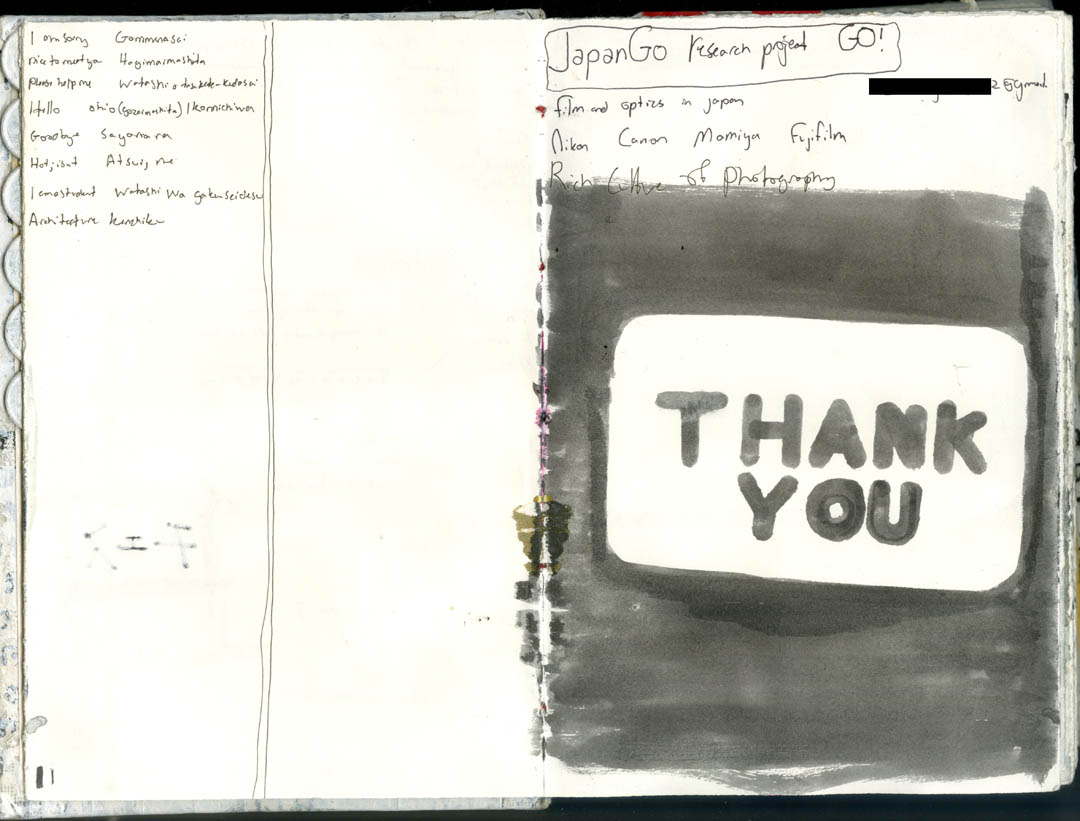 I am sorry Gommenasai
nice to meet ya Hagimaimashita
please help me Watashi o taskete-kudasai
Hello ohio (gozaimashita) / Konnichiwa
Goodbye Sayonara
Hot, isnt Atsui, ne
I am a student Watashi wa gakuseidesu
Architecture kenchiku
JapanGo research project GO!
film and optics in japan
Nikon Canon Momiya Fujifilm
Rich Culture of photography
THANK
YOU